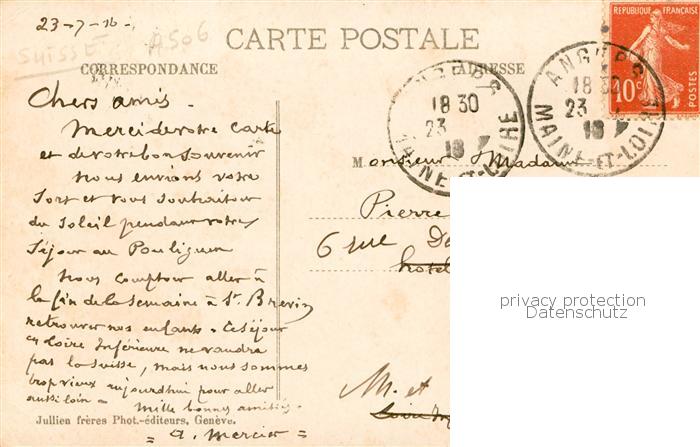 23-7-16-
SUISSE
A506
CARTE POSTALE
CORRESPONDANCE
ADRESSE
REPUBLIQUE FRANÇAISE
10c
POSTES
ANGERS
18 30
23
16
MAINE-ET-LOIRE
ANGERS
18 30
23
16
MAINE-ET-LOIRE
Chers amis -
Merci de votre carte
et de votre bon souvenir
Nous envions votre
sort et vous souhaitons
du soleil pendant votre
séjour au Pouliguen
Nous comptons aller à
la fin de la semaine à St. Brevin
retrouver nos enfants. Ce séjour
en Loire Inférieure ne vaudra
pas la Suisse, mais nous sommes
trop vieux aujourdhui pour aller
aussi loin - Mille bonnes amitiés -
= A. Mercier =
Jullien frères Phot.-éditeurs, Genève.
Monsieur Madame
Pierre
6 rue De
hotel
M. et
Loire
privacy protection
Datenschutz